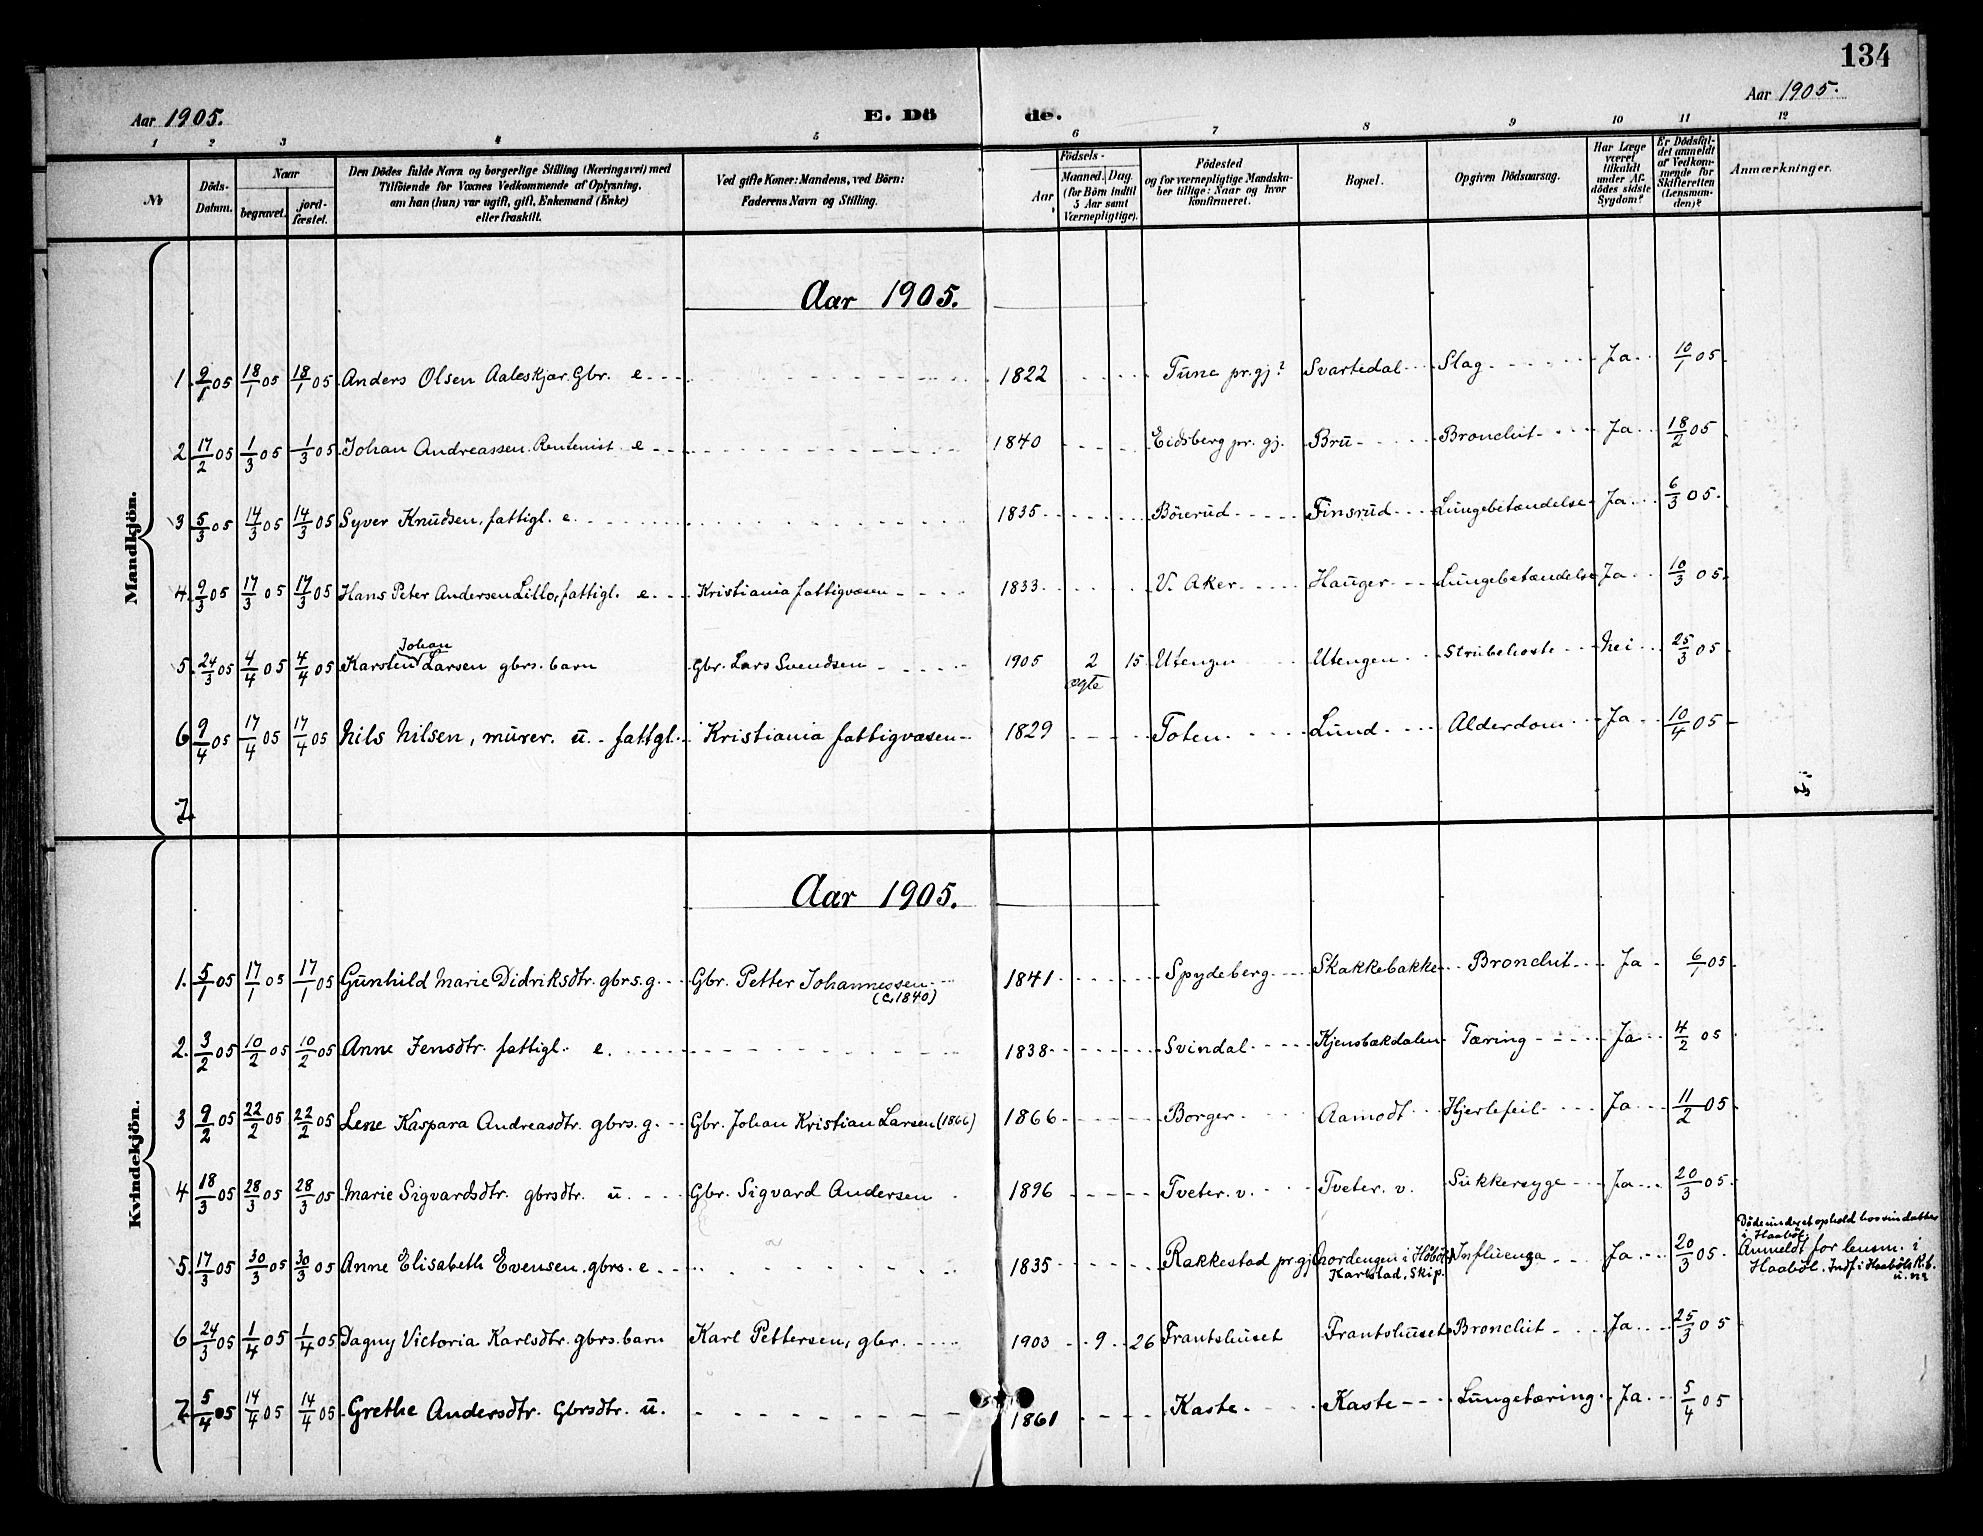 134
Aar 1905.
E. Dö
de.
Aar 1905.
1 2 3 4 5 6 7 8 9 10 11 12
No
Döds-Datum.
Naar
begravet.
jord-fæstet.
Den Dödes fulde Navn og borgerlige Stilling (Næringsvei) med
Tilföiende for Voxnes Vedkommende af Oplysning,
om han (hun) var ugift, gift, Enkemand (Enke)
eller fraskilt.
Ved gifte Koner: Mandens, ved Börn:
Faderens Navn og Stilling.
Födsels-
Aar
Maaned. Dag.
(for Börn indtil
5 Aar samt
Værnepligtige).
Födested
og for værnepligtige Mandska-
ber tillige: Naar og hvor
konfirmeret.
Bopæl.
Opgiven Dödsaarsag.
Har Læge
været
tilkaldt
under Af-
dödes sidste
Sygdom?
Er Dödsfal-
det anmeldt
af Vedkom-
mende for
Skifteretten
(Lensman-
den)?
Anmærkninger.
Mandkjön.
Aar 1905.
1. 9/1 05 18/1 05 18/1 05 Anders Olsen Aaleskjær. Gbr. e 1822 Tune pr.gj? Svartedal Slag Ja 10/1 05
2 17/2 05 1/3 05 1/3 05 Johan Andreassen Rentenist e 1840 Eidsberg pr. gj. Bru Bronchit Ja 18/2 05
3 5/3 05 14/3 05 14/3 05 Syver Knudsen, fattigl. e 1835 Böierud Finsrud Lungebetændelse Ja 6/3 05
4. 9/3 05 17/3 05 17/3 05 Hans Peter Andersen Lillo, fattigl. e Kristiania fattigvæsen 1833 V. Aker Hauger Lungebetændelse Ja 10/3 05
Johan
5. 24/3 05 4/4 05 4/4 05 Karsten Larsen gbrs. barn Gbr. Lars Svendsen 1905 2 15 Utengen Utengen Strubehoste Nei 25/3 05
ægte
6 9/4 05 17/4 05 17/4 05 Nils Nilsen, murer. u. fattgl. Kristiania fattigvæsen 1829 Toten Lund Alderdom Ja 10/4 05
7.
Kvindekjön.
Aar 1905.
1. 5/1 05 17/1 05 17/1 05 Gunhild Marie Didriksdtr. gbrs. g. Gbr. Petter Johannessen 1841 Spydeberg Skakkebakke Bronchit Ja 6/1 05
(c. 1840)
2. 3/2 05 10/2 05 10/2 05 Anne Jensdtr. fattigl. e. 1838 Svindal Kjensbækdalen Tæring Ja 4/2 05
3 9/2 05 22/2 05 22/2 05 Lene Kaspara Andreasdtr. gbrs. g. Gbr. Johan Kristian Larsen (1866) 1866 Borger Aamodt Hjertefeil Ja 11/2 05
4 18/3 05 28/3 05 28/3 05 Marie Sigvardsdtr. gbrsdtr. u. Gbr. Sigvard Andersen 1896 Tveter. v. Tveter. v. Sukkersyge Ja 20/3 05
5. 17/3 05 30/3 05 30/3 05 Anne Elisabeth Evensen. gbrs. e 1835 Rakkestad pr.gj. Gordengen i Haaböl Influenza Ja 20/3 05
Karlstad, Skip.
Döde under et ophold hos sin datter
i Haaböl.
Anmeldt for lensm. i
Haaböl. Indf. i Haaböls K.b.
u. nr
6 24/3 05 1/4 05 1/4 05 Dagny Victoria Karlsdtr. gbrs. barn Karl Pettersen, gbr. 1903 9 26 Frantshuset Frantshuset Bronchit Ja 25/3 05
7. 5/4 05 14/4 05 14/4 05 Grethe Andersdtr. Gbrsdtr. u. 1861 Kaste Kaste Lungetæring Ja 5/4 05